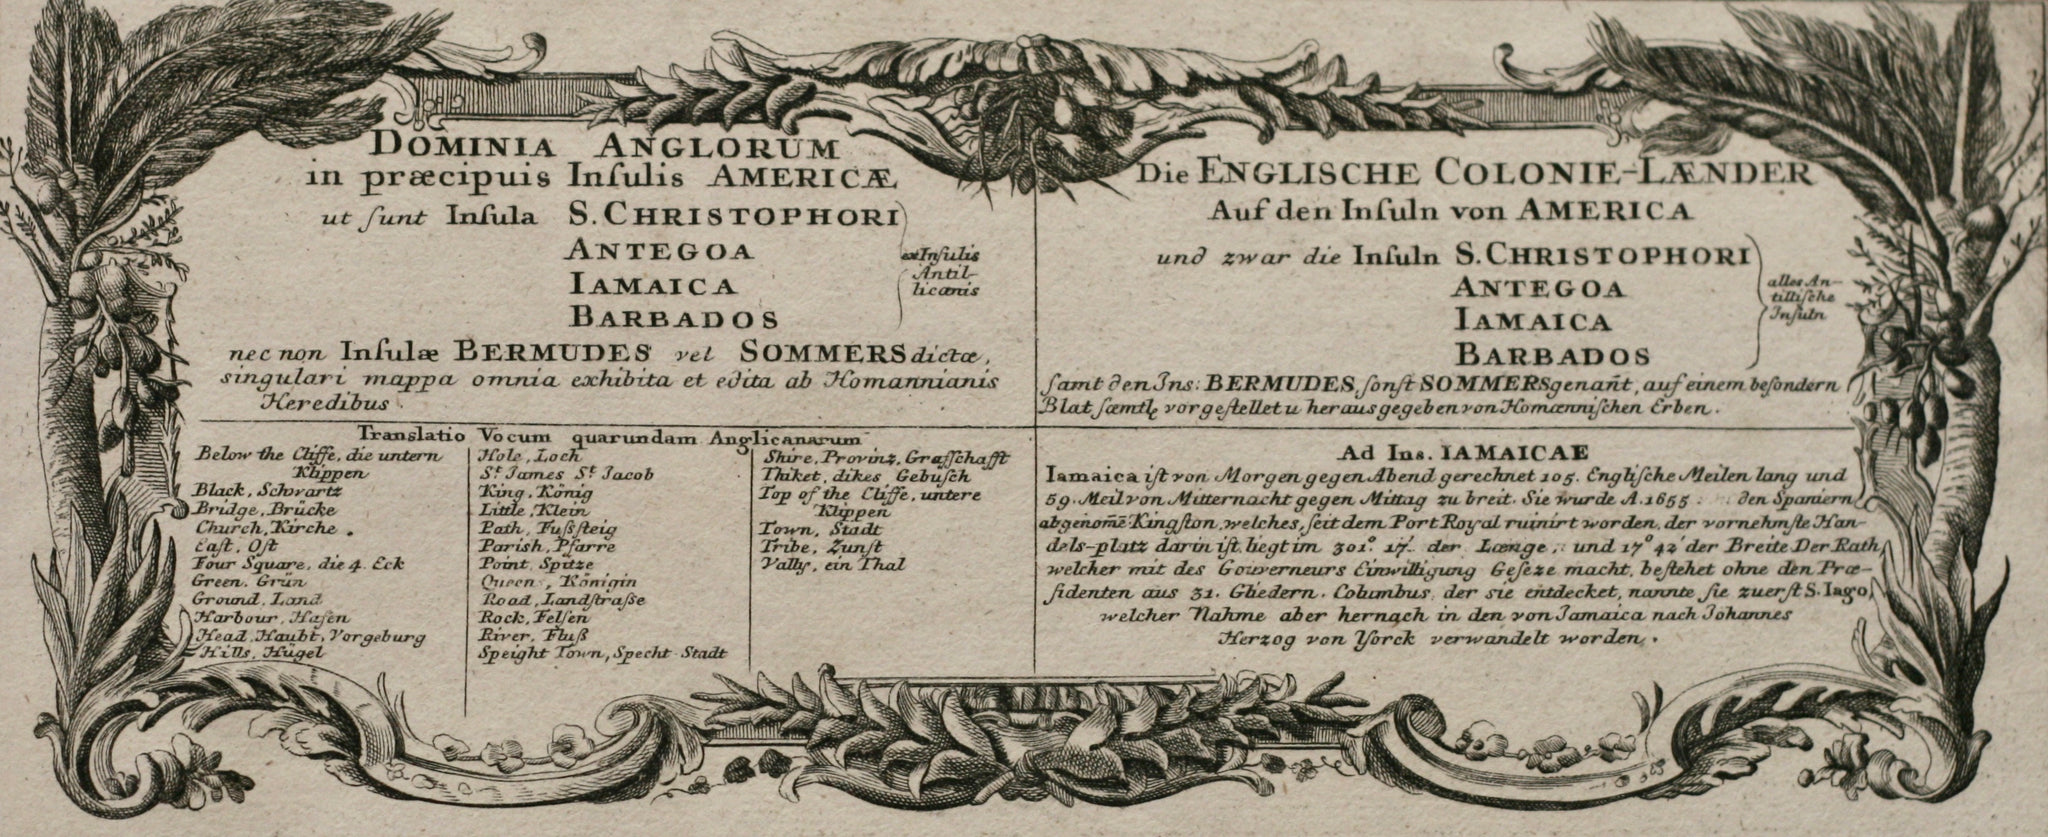 DOMINIA ANGLORUM
in præcipuis Inſulis AMERICÆ
ut ſunt Inſula S. CHRISTOPHORI
ANTEGOA
IAMAICA
BARBADOS
ex Inſulis
Antil-
licanis
nec non Inſulæ BERMUDES vel SOMMERS dictæ,
singulari mappa omnia exhibita et edita ab Homannianis
Heredibus.
Die ENGLISCHE COLONIE-LÆNDER
Auf den Inſuln von AMERICA
und zwar die Inſuln S. CHRISTOPHORI
ANTEGOA
IAMAICA
BARBADOS
alles An-
tilliſche
Inſuln
ſamt den Ins: BERMUDES, ſonſt SOMMERS genan̄t, auf einem beſondern
Blat ſæmtl. vorgeſtellet u herausgegeben von Homænniſchen Erben.
Translatio Vocum quarundam Anglicanarum
Below the Cliffe, die untern
Klippen
Black, Schwartz
Bridge, Brücke
Church, Kirche.
Eaſt, Oſt
Four Square, die 4. Eck
Green, Grün
Ground, Land
Harbour, Hafen
Head, Haubt, Vorgeburg
Hills, Hügel
Hole, Loch
St. James St. Jacob
King, König
Little, Klein
Path, Fußſteig
Parish, Pfarre
Point, Spitze
Queen, Königin
Road, Landſtraſſe
Rock, Felſen
River, Fluß
Speight Town, Specht-Stadt
Shire, Provinz, Graffſchafft
Thiket, dikes Gebuſch
Top of the Cliffe, untere
Klippen
Town, Stadt
Tribe, Zunft
Vally, ein Thal
Ad Ins. IAMAICAE
Iamaica iſt von Morgen gegen Abend gerechnet 105. Engliſche Meilen lang und
59. Meil von Mitternacht gegen Mittag zu breit. Sie wurde A. 1655 den Spaniern
abgenom̄e Kingſton, welches, ſeit dem Port Royal ruinirt worden, der vornehmſte Han-
dels-platz darin iſt, liegt im 301° 17' der Længe, und 17° 42' der Breite Der Rath,
welcher mit des Gouverneurs Einwilligung Geſeze macht, beſtehet ohne den Præ-
ſidenten aus 31. Gliedern. Columbus, der sie entdecket, nannte ſie zuerſt S. Iago,
welcher Nahme aber hernach in den von Jamaica nach Johannes
Herzog von Yorck verwandelt worden.